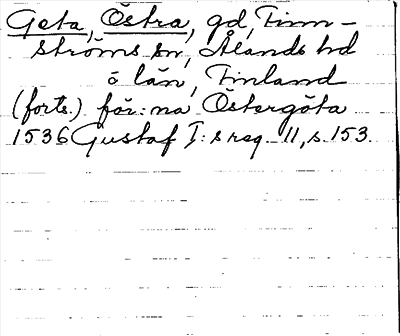 Geta, Östra, gd, Finn-
ströms sn, Ålands hd
o län, Finland
(forts.) för: na Östergöta
1536 Gustaf I:s reg. 11, s. 153.